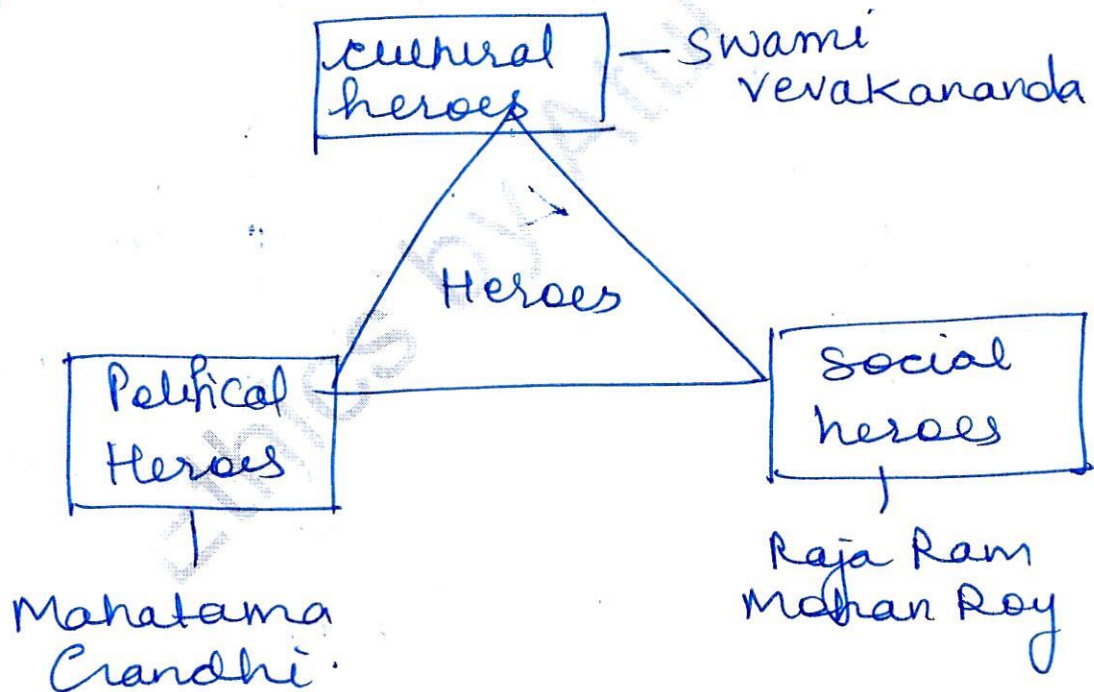 cultural
heroes
— Swami
Vevakananda
Heroes
Political
Heroes
Social
heroes
Mahatama
Gandhi.
Raja Ram
Mohan Roy